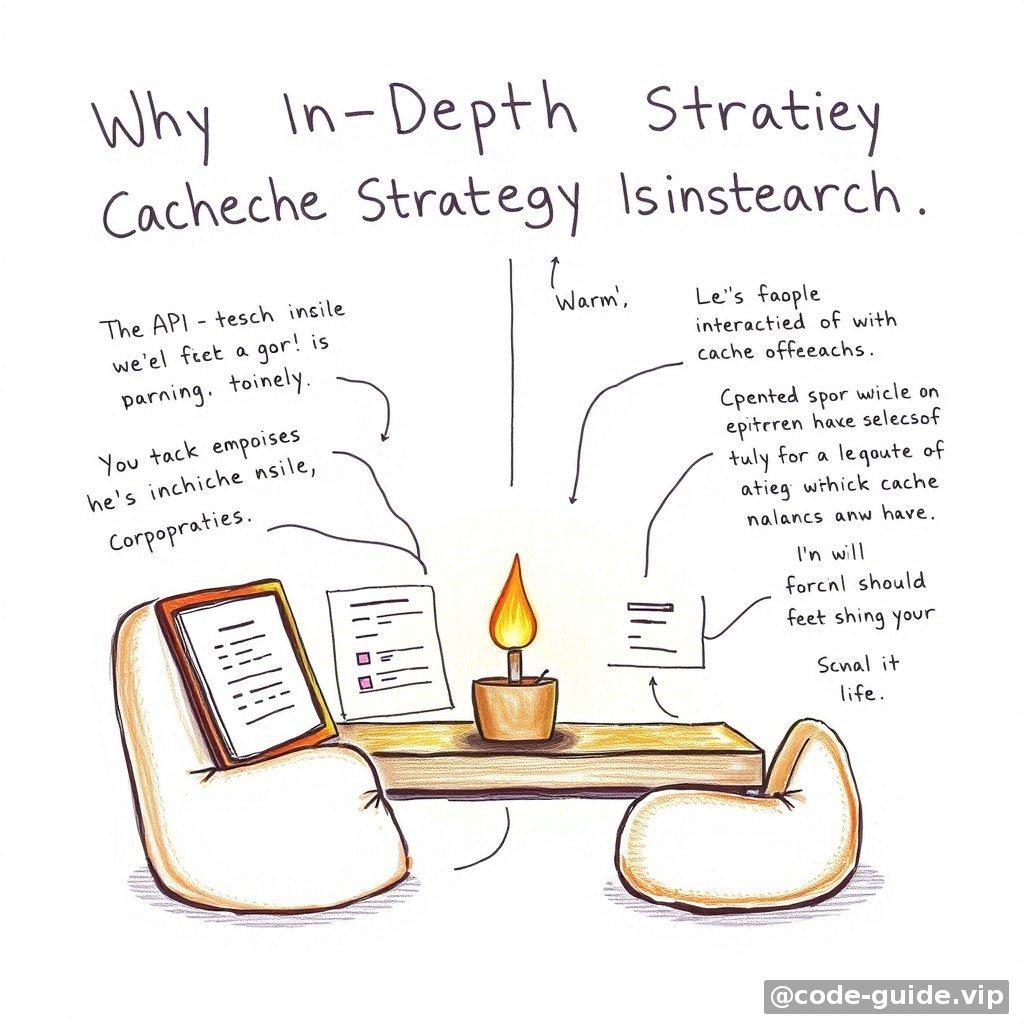 Why In-Depth Stratiey
Cacheche Strategy Isinstearch.
Warm',
The API - tesch insile
we'el feet a gor! is
parning. toinely.
You tack empoises
he's inchiche nsile,
Corpopraties.
Le"s faople
interactied of with
cache offeeachs.
Cpented spor wicle on
epitrren have selecsof
tuly for a leqoute of
atieg whick cache
nalancs anw have.
I'n will
forcnl should
feet shing your
Scnal it
life.
@code-guide.vip